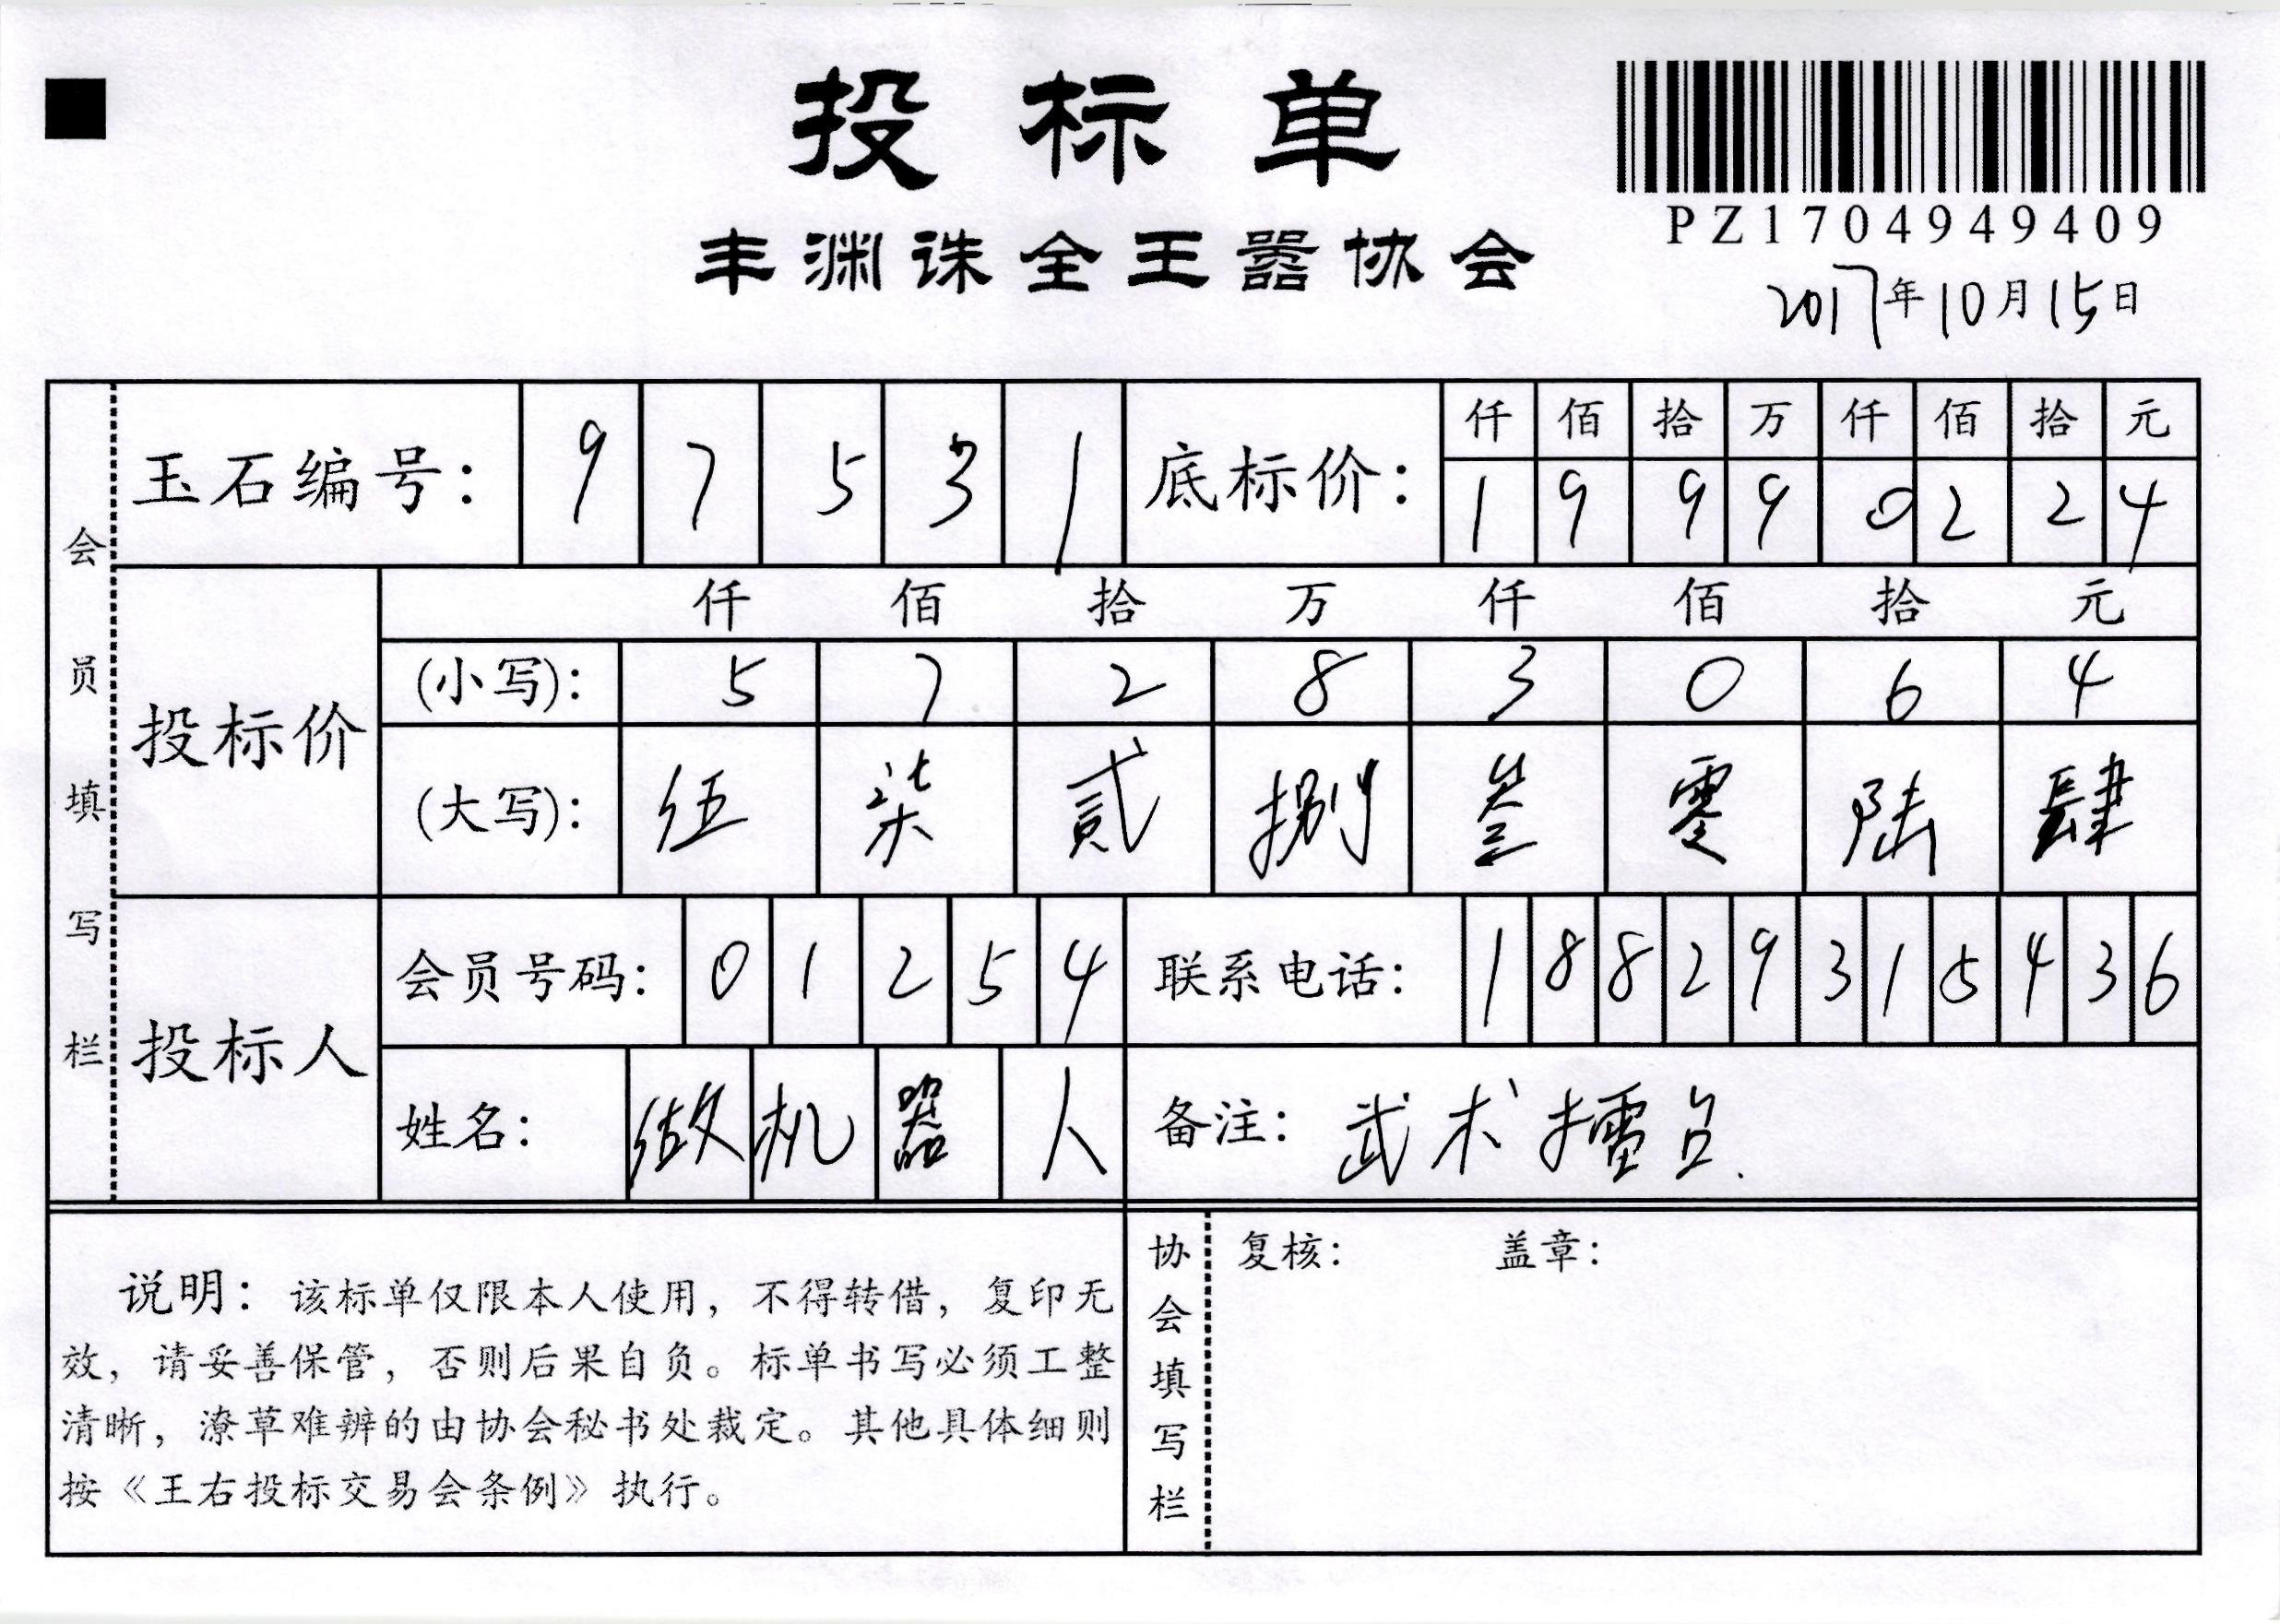 投标单
PZ1704949409
丰渊诛全王嚣协会
2017年10月15日
会员填写栏
玉石编号： 9 7 5 3 1 底标价： 仟 佰 拾 万 仟 佰 拾 元
1 9 9 9 0 2 2 4
投标价 仟 佰 拾 万 仟 佰 拾 元
(小写)： 5 7 2 8 3 0 6 4
(大写)： 伍 柒 贰 捌 叁 零 陆 肆
投标人 会员号码： 0 1 2 5 4 联系电话： 1 8 8 2 9 3 1 5 4 3 6
姓名： 做 机 器 人 备注： 武术擂台.
说明：该标单仅限本人使用，不得转借，复印无
效，请妥善保管，否则后果自负。标单书写必须工整
清晰，潦草难辨的由协会秘书处裁定。其他具体细则
按《王右投标交易会条例》执行。
协会填写栏
复核： 盖章：